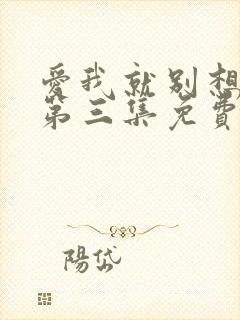 愛我就別想
第三集免費
陽岱